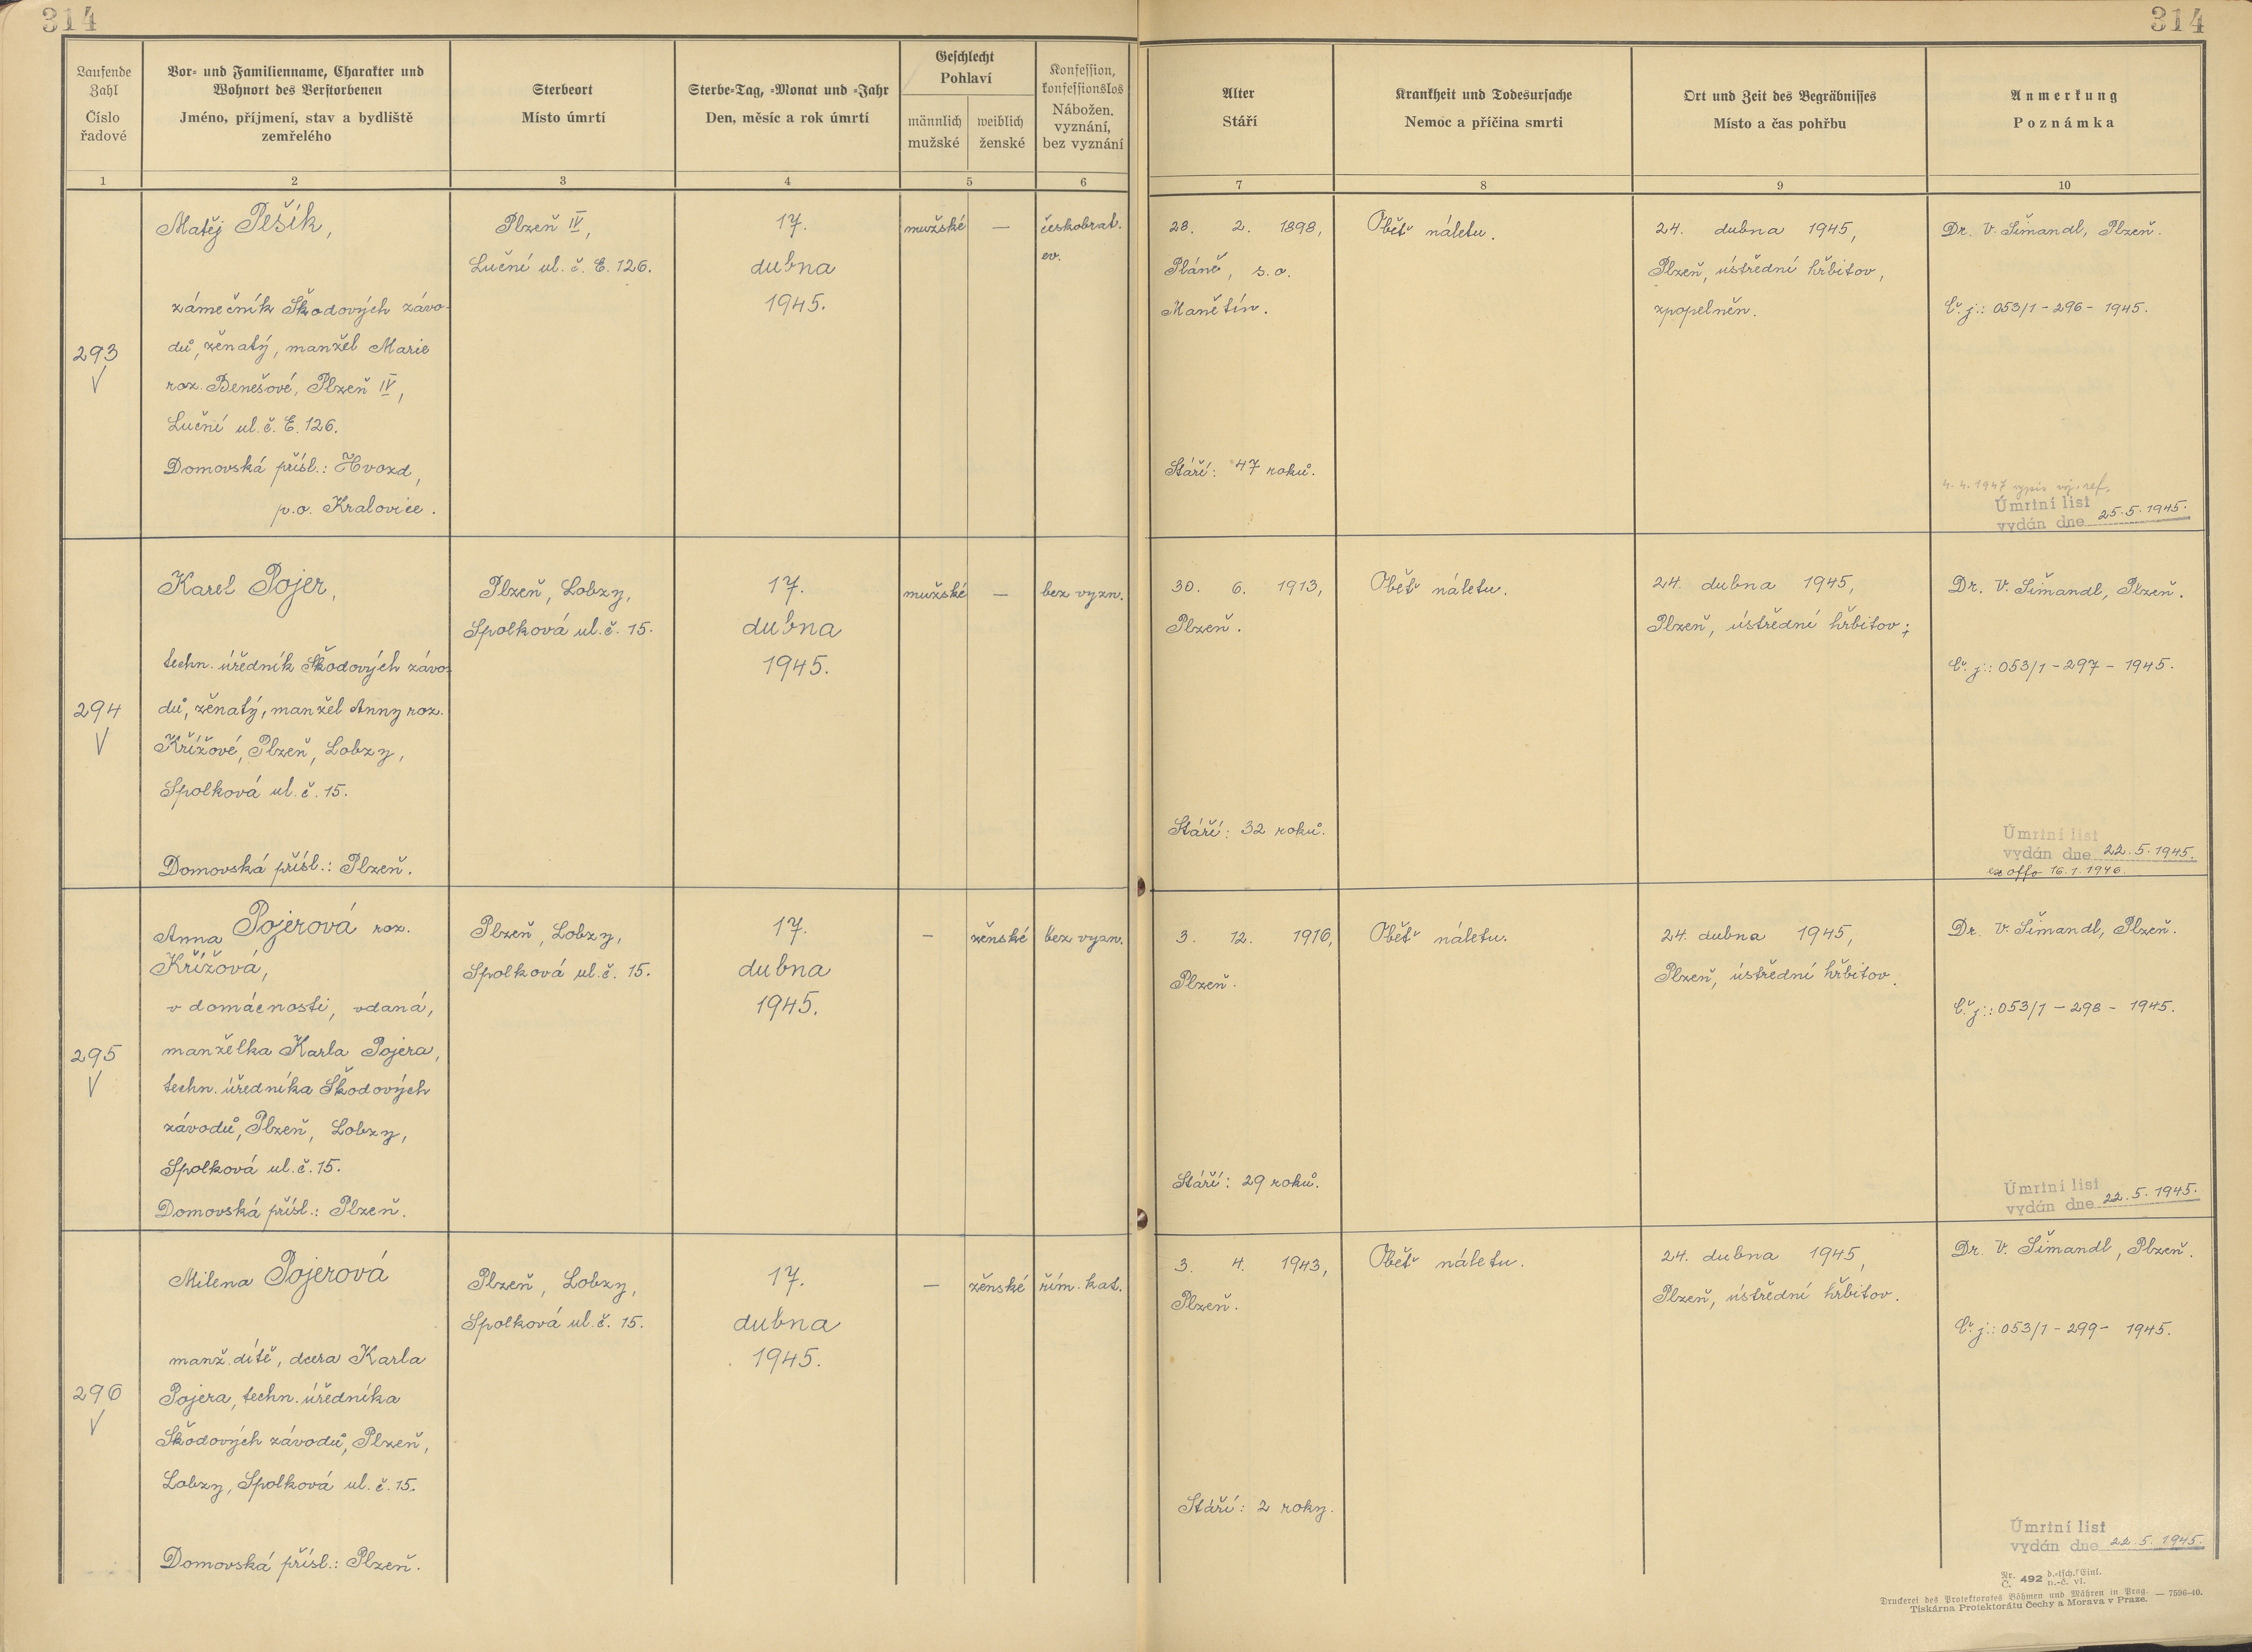 314
314
Laufende
Zahl
Číslo
řadové
Vor- und Familienname, Charakter und
Wohnort des Verstorbenen
Jméno, příjmení, stav a bydliště
zemřelého
Sterbeort
Místo úmrtí
Sterbe-Tag, -Monat und -Jahr
Den, měsíc a rok úmrtí
Geschlecht
Pohlaví
männlich
mužské
weiblich
ženské
Konfession,
konfessionslos
Nábožen.
vyznání,
bez vyznání
Alter
Stáří
Krankheit und Todesursache
Nemoc a příčina smrti
Ort und Zeit des Begräbnisses
Místo a čas pohřbu
Anmerkung
Poznámka
1
2
3
4
5
6
7
8
9
10
293
V
Matěj Pešík,
zámečník Škodových závo-
dů, ženatý, manžel Marie
roz. Benešové, Plzeň IV,
Luční ul. č. E. 126.
Domovská přísl.: Hvozd,
p.o. Kralovice.
Plzeň IV,
Luční ul. č. E. 126.
17.
dubna
1945.
mužské
—
českobrat.
ev.
28. 2. 1898,
Pláně, s.o.
Manětín.
Stáří: 47 roků.
Oběť náletu.
24. dubna 1945,
Plzeň, ústřední hřbitov,
zpopelněn.
Dr. V. Šimandl, Plzeň.
Č. j.: 053/1 - 296 - 1945.
4. 4. 1947 výpis voj. ref.
Úmrtní list
vydán dne 25. 5. 1945.
294
V
Karel Pojer,
techn. úředník Škodových závo-
dů, ženatý, manžel Anny roz.
Křížové, Plzeň, Lobzy,
Spolková ul. č. 15.
Domovská přísl.: Plzeň.
Plzeň, Lobzy,
Spolková ul. č. 15.
17.
dubna
1945.
mužské
—
bez vyzn.
30. 6. 1913,
Plzeň.
Stáří: 32 roků.
Oběť náletu.
24. dubna 1945,
Plzeň, ústřední hřbitov.
Dr. V. Šimandl, Plzeň.
Č. j.: 053/1 - 297 - 1945.
Úmrtní list
vydán dne 22. 5. 1945.
ex offo 16. 1. 1946.
295
V
Anna Pojerová roz.
Křížová,
v domácnosti, vdaná,
manželka Karla Pojera,
techn. úředníka Škodových
závodů, Plzeň, Lobzy,
Spolková ul. č. 15.
Domovská přísl.: Plzeň.
Plzeň, Lobzy,
Spolková ul. č. 15.
17.
dubna
1945.
—
ženské
bez vyzn.
3. 12. 1916,
Plzeň.
Stáří: 29 roků.
Oběť náletu.
24. dubna 1945,
Plzeň, ústřední hřbitov.
Dr. V. Šimandl, Plzeň.
Č. j.: 053/1 - 298 - 1945.
Úmrtní list
vydán dne 22. 5. 1945.
296
V
Milena Pojerová
manž. dítě, dcera Karla
Pojera, techn. úředníka
Škodových závodů, Plzeň,
Lobzy, Spolková ul. č. 15.
Domovská přísl.: Plzeň.
Plzeň, Lobzy,
Spolková ul. č. 15.
17.
dubna
1945.
—
ženské
řím. kat.
3. 4. 1943,
Plzeň.
Stáří: 2 roky.
Oběť náletu.
24. dubna 1945,
Plzeň, ústřední hřbitov.
Dr. V. Šimandl, Plzeň.
Č. j.: 053/1 - 299 - 1945.
Úmrtní list
vydán dne 22. 5. 1945.
Nr. 492 d.-tsch. Einl.
Č. n.-č. vl.
Druckerei des Protektorates Böhmen und Mähren in Prag. — 7596-40.
Tiskárna Protektorátu Čechy a Morava v Praze.